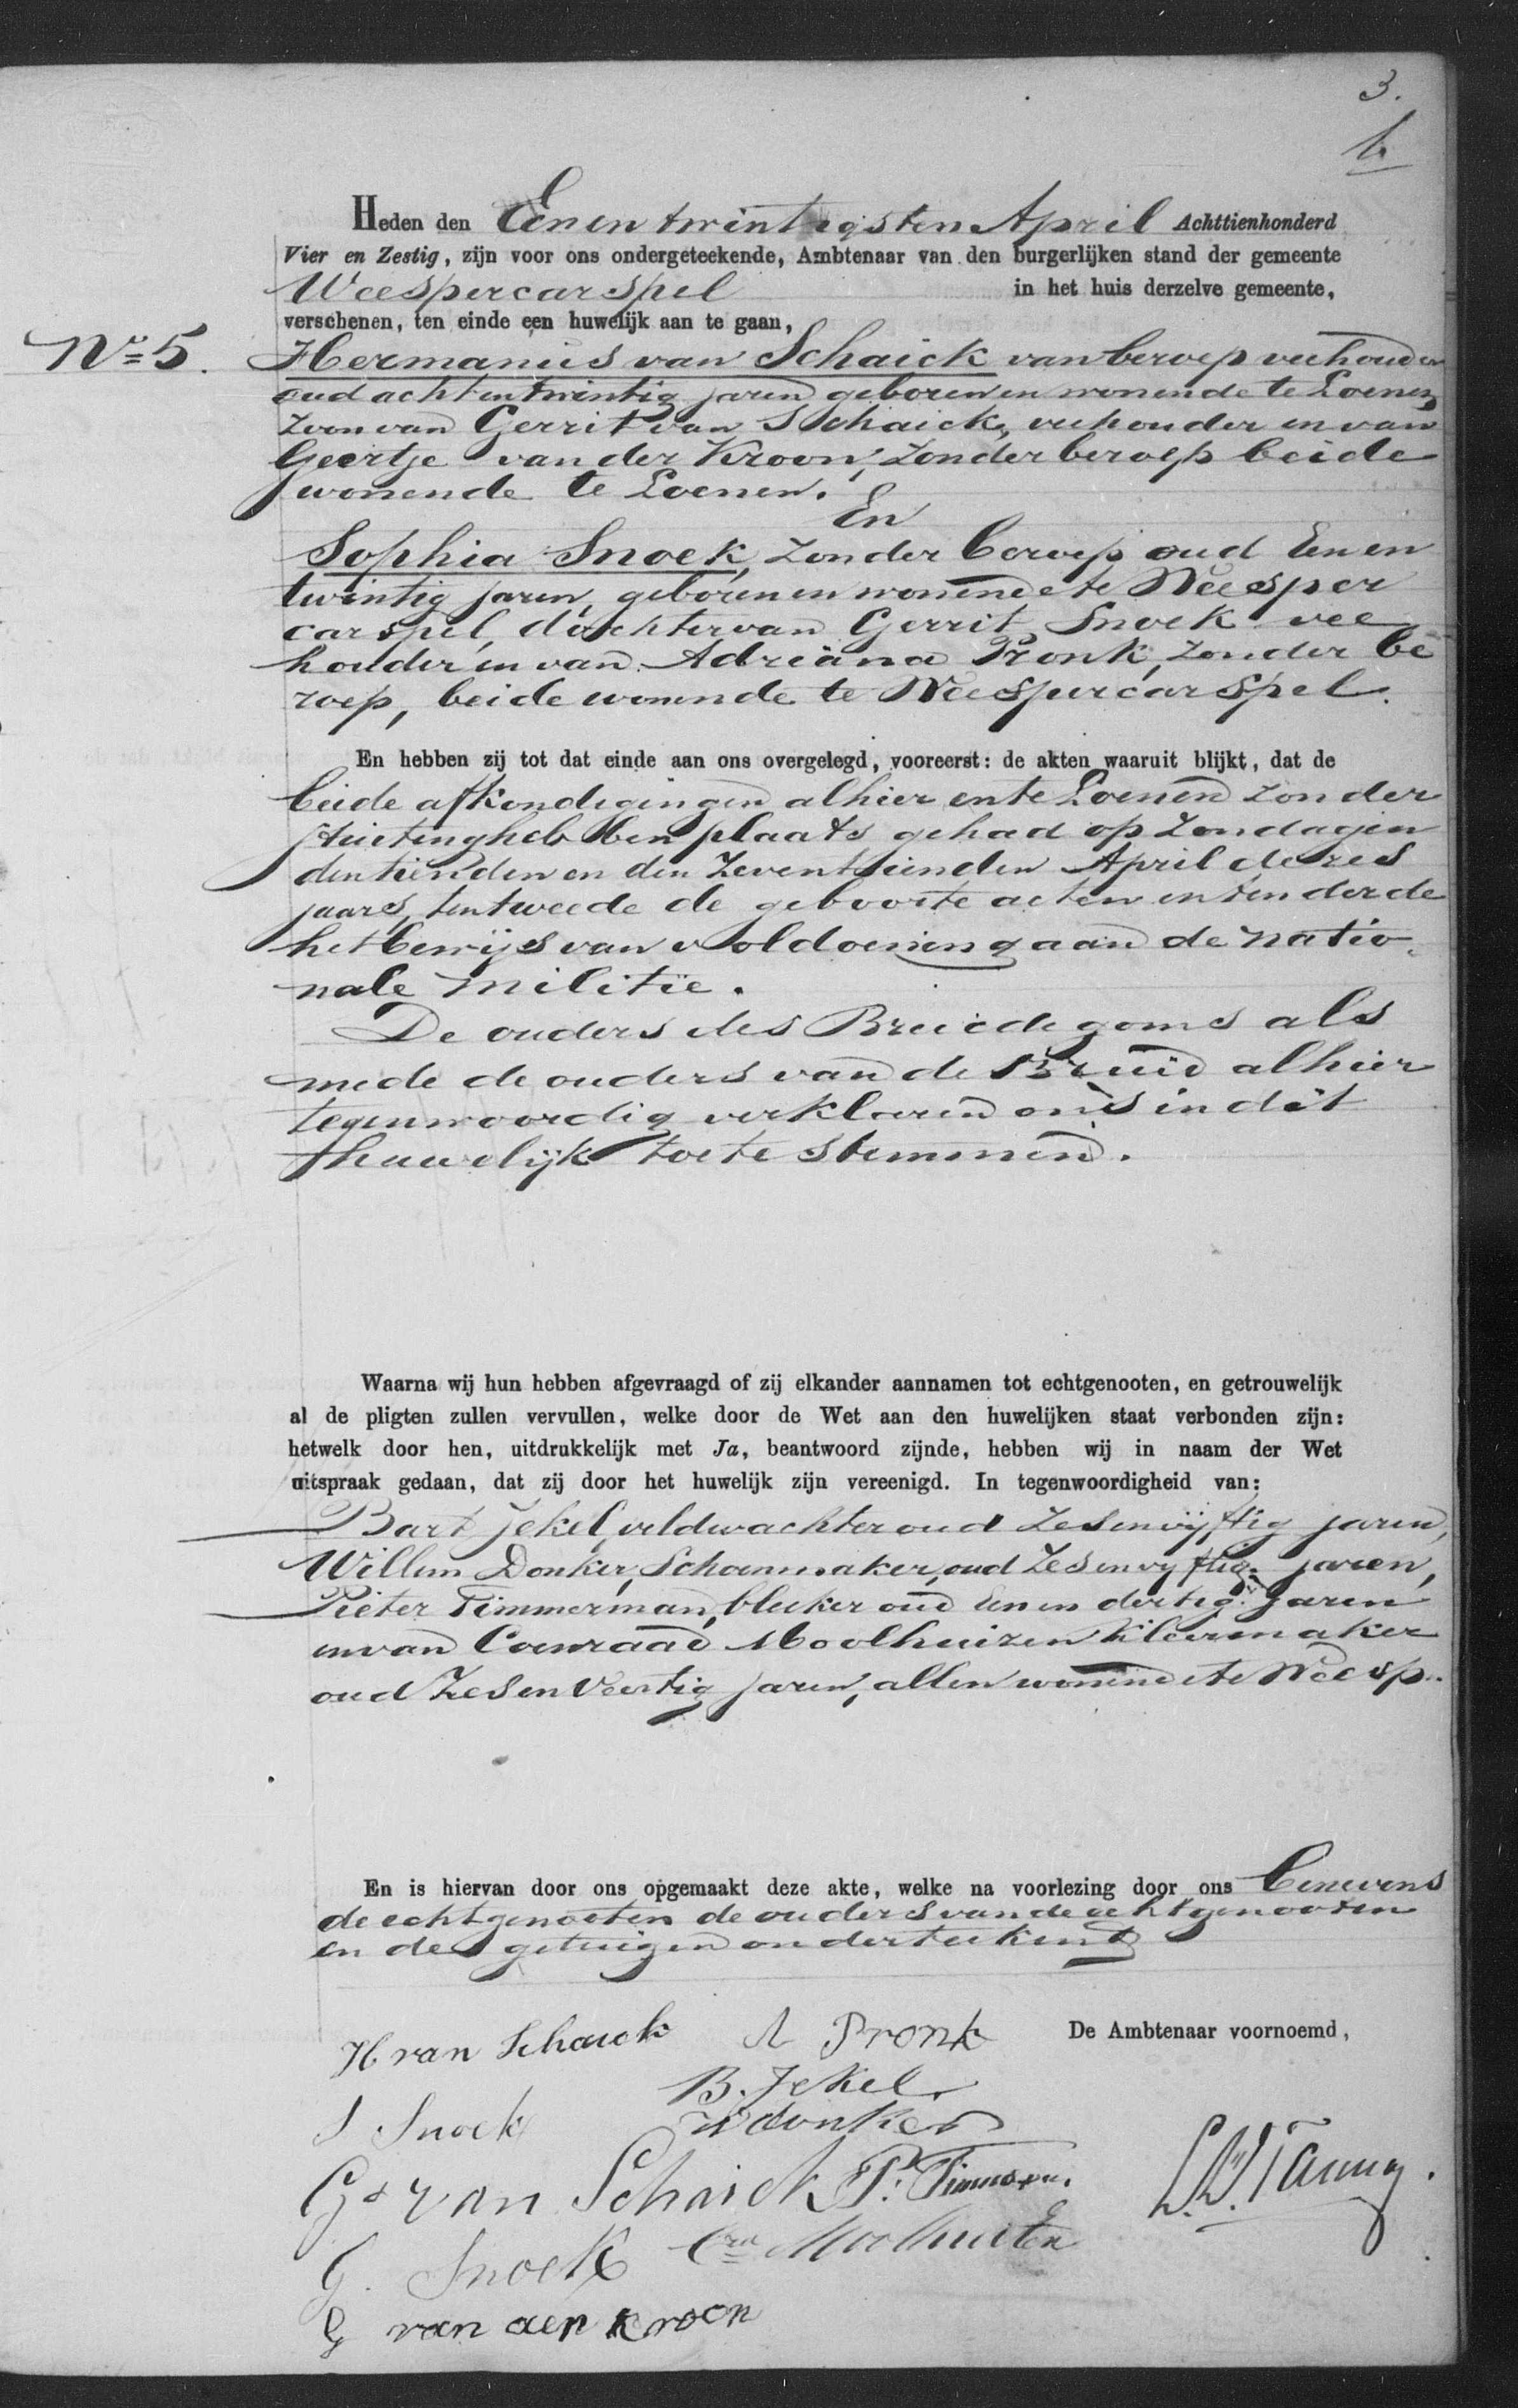 3.
b
Heden den Eenentwintigsten April Achttienhonderd
Vier en Zestig, zijn voor ons ondergeteekende, Ambtenaar van den burgerlijken stand der gemeente
Weespercarspel in het huis derzelve gemeente,
verschenen, ten einde een huwelijk aan te gaan,
No 5. Hermanus van Schaick van beroep veehouder
oud achtentwintig jaren geboren en wonende te Loenen,
Zoon van Gerrit van Schaick, veehouder en van
Geertje van der Kroon, Zonder beroep beide
wonende te Loenen.
En
Sophia Snoek, Zonder beroep oud Een en
twintig jaren, geboren en wonende te Weesper
carspel, dochter van Gerrit Snoek vee
houder en van Adriana Pronk, Zonder be
roep, beide wonende te Weespercarspel.
En hebben zij tot dat einde aan ons overgelegd, vooreerst: de akten waaruit blijkt, dat de
beide afkondigingen alhier en te Loenen zonder
stuiting hebben plaats gehad op Zondagen
den tienden en den Zeventienden April dezes
jaars, ten tweede de geboorte acten en ten derde
het bewijs van voldoening aan de natio-
nale militie.
De ouders des Bruidegoms als
mede de ouders van de Bruid alhier
tegenwoordig verklaren ons in dit
huwelijk toe te stemmen.
Waarna wij hun hebben afgevraagd of zij elkander aannamen tot echtgenooten, en getrouwelijk
al de pligten zullen vervullen, welke door de Wet aan den huwelijken staat verbonden zijn:
hetwelk door hen, uitdrukkelijk met Ja, beantwoord zijnde, hebben wij in naam der Wet
uitspraak gedaan, dat zij door het huwelijk zijn vereenigd. In tegenwoordigheid van:
Bart Jekel veldwachter oud Zesenvijftig jaren,
Willem Donker, Schoenmaker, oud Zesenvyftig jaren,
Pieter Timmerman, bleeker oud Een en dertig Jaren
en van Coenraad Moolhuizen kleermaker
oud Zesenveertig jaren, allen wonende te Weesp.
En is hiervan door ons opgemaakt deze akte, welke na voorlezing door ons benevens
de echtgenooten de ouders van de echtgenooten
en de getuigen onderteekend
H van Schaick A Pronk De Ambtenaar voornoemd,
B. Jekel
S Snoek W donker
G van Schaick P. Timmerm.
G. Snoek Moolhuizen
G van der Kroon